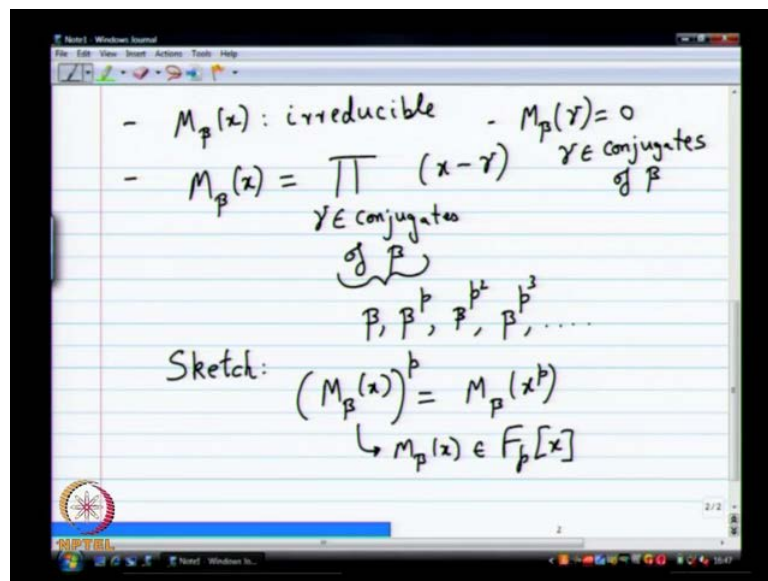 Note1 - Windows Journal
File Edit View Insert Actions Tools Help
- M_β(x) : irreducible - M_β(γ) = 0
γ ∈ conjugates of β
- M_β(x) = ∏ (x - γ)
γ ∈ conjugates
of β
β, β^p, β^{p^2}, β^{p^3}, ....
Sketch:
(M_β(x))^p = M_β(x^p)
↳ M_β(x) ∈ F_p[x]
2/2
2
NPTEL
Note1 - Windows Jo...
16:47